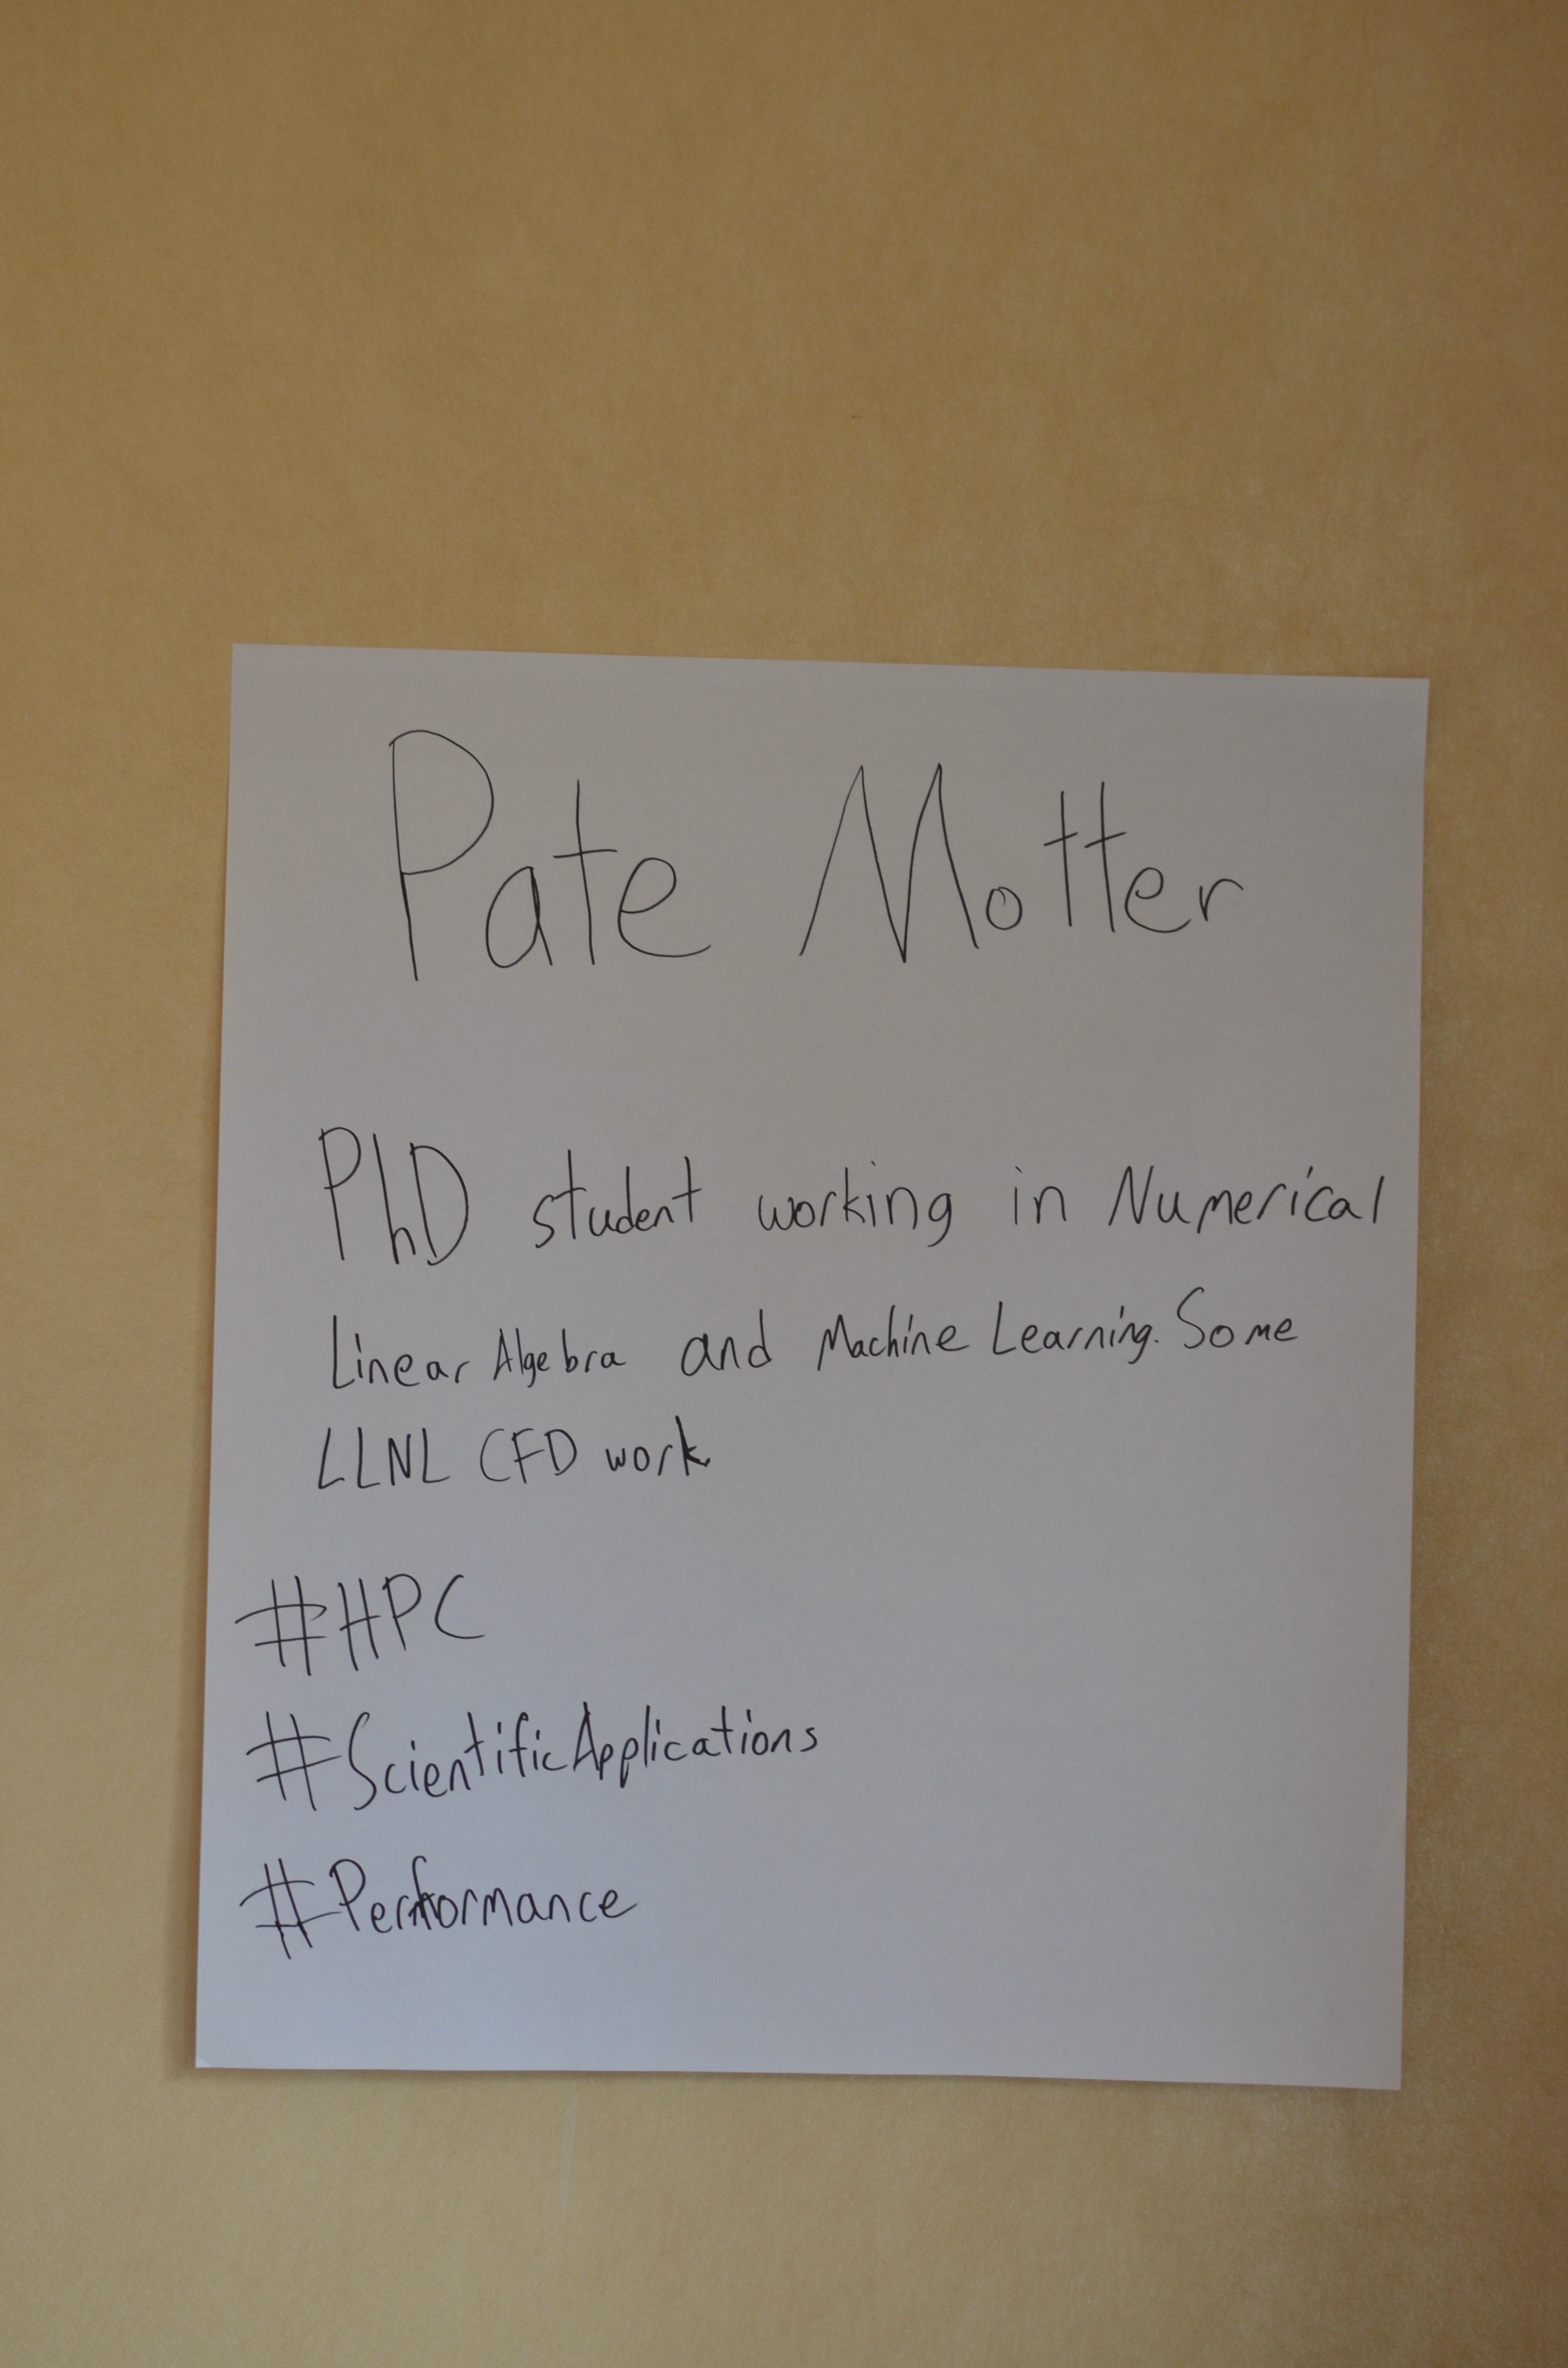 Pate Motter
PhD student working in Numerical
Linear Algebra and Machine Learning. Some
LLNL CFD work
#HPC
#ScientificApplications
#Performance